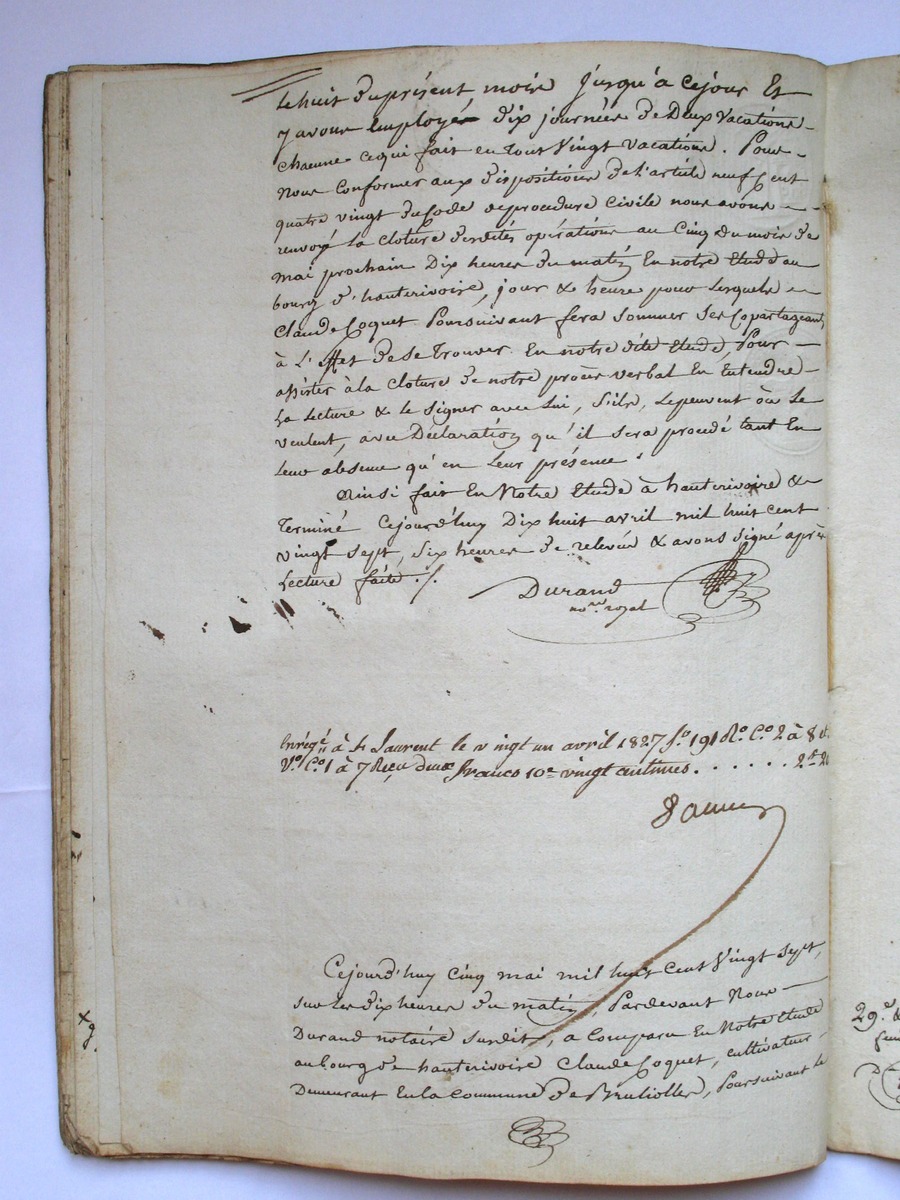 le huit du présent mois jusqu'à cejour Et
y avons Employé dix journées de Deux Vacations
chacune cequi fait en tout Vingt vacations. Pour
nous Conformer aux dispositions de l'article neuf cent
quatre vingt du Code de procedure Civile nous avons
renvoyé la cloture desdites opérations au Cinq du mois de
mai prochain Dix heures du matin En notre Etude au
bourg d'hauterivoire, jour & heure pour lesquels
Claude Coquet Poursuivant fera sommer ses Copartageants
à L'effet de se trouver En notre dite Etude, Pour
assister à la Cloture de notre procès verbal En Entendre
la Lecture & le signer avec Lui, S'ils Le peuvent où Le
veulent, avec Déclaration qu'il sera procédé tant En
leur absence qu'en leur présence.
Ainsi fait En Notre Etude à hauterivoire &
Terminé Cejourd'huy Dix huit avril mil huit cent
vingt sept, six heures de relevée & avons signé après
Lecture faite ./.
Durand
nore royal
Enrégé à St Laurent le vingt un avril 1827 fo. 191 Ro. Co. 2 à 8 et
Vo. Co. 1 à 7 Reçu deux francs 10e vingt centimes. . . . . . 2f 20
Cejourd'huy Cinq mai mil huit Cent Vingt Sept,
sur les dix heures du matin, Pardevant Nous
Durand notaire susdit, a Comparu En Notre Etude
au bourg d'hauterivoire Claude Coquet, cultivateur
Demeurant En la Commune de Brulliolles, Poursuivant le
29.e &